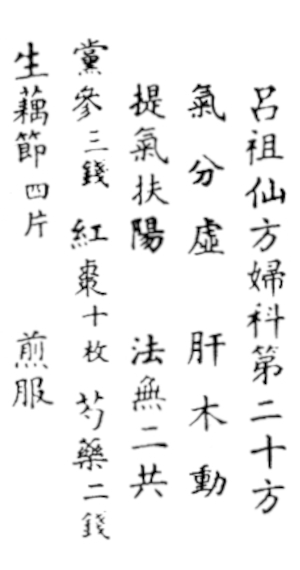 呂祖仙方婦科第二十方
氣分虛 肝木動
提氣扶陽 法無二共
黨參三錢 紅棗十枚 芍藥二錢
生藕節四片 煎服